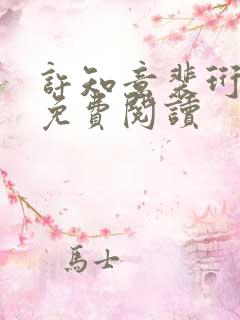 許知意裴珩
免費閱讀
馬士